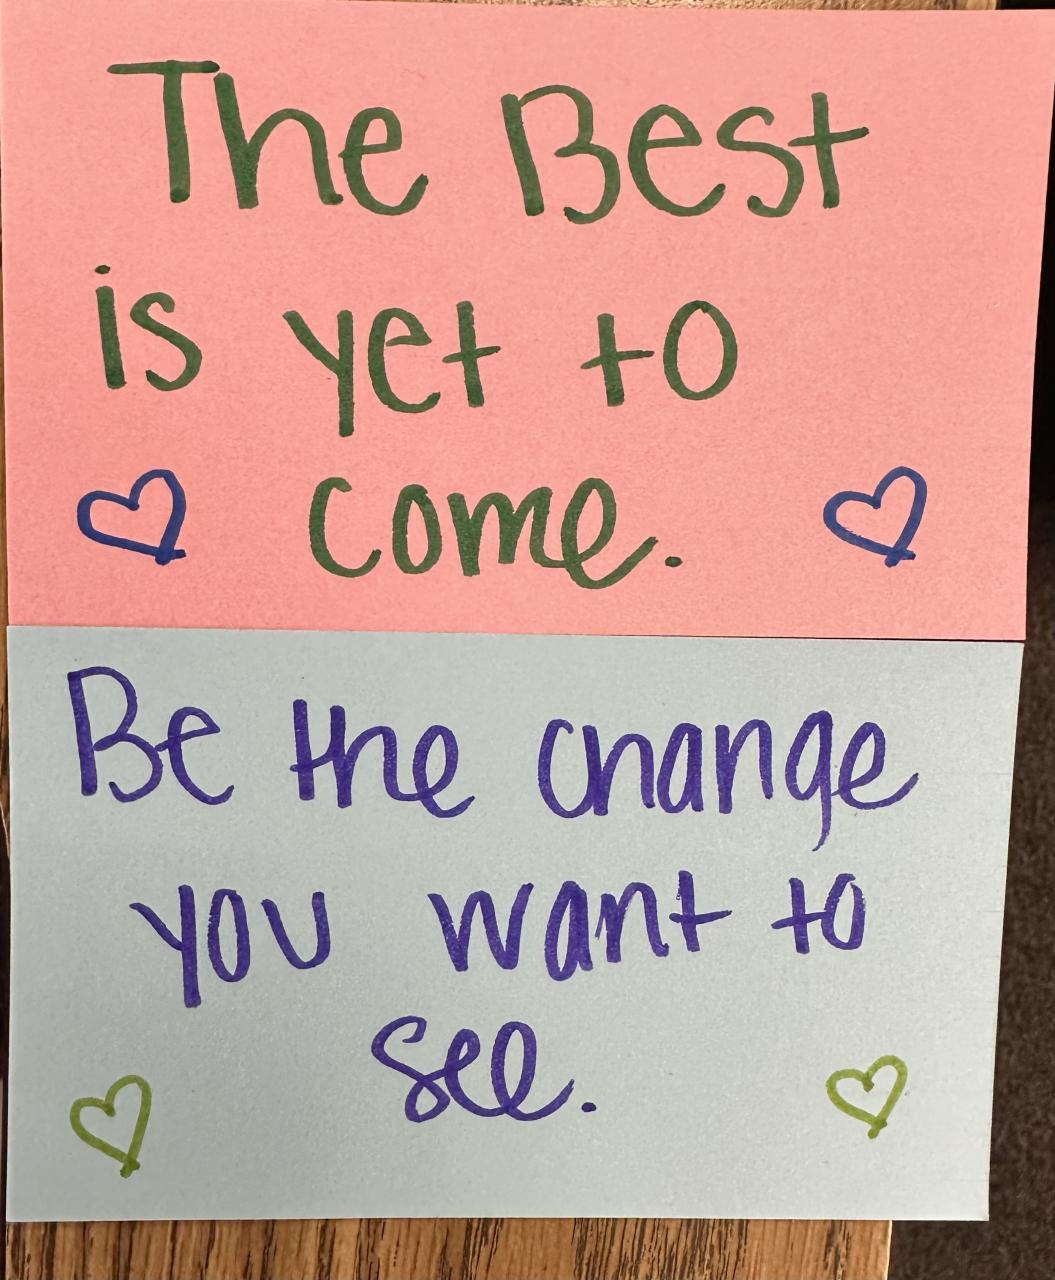 The Best
is yet to
come.
Be the change
you want to
see.